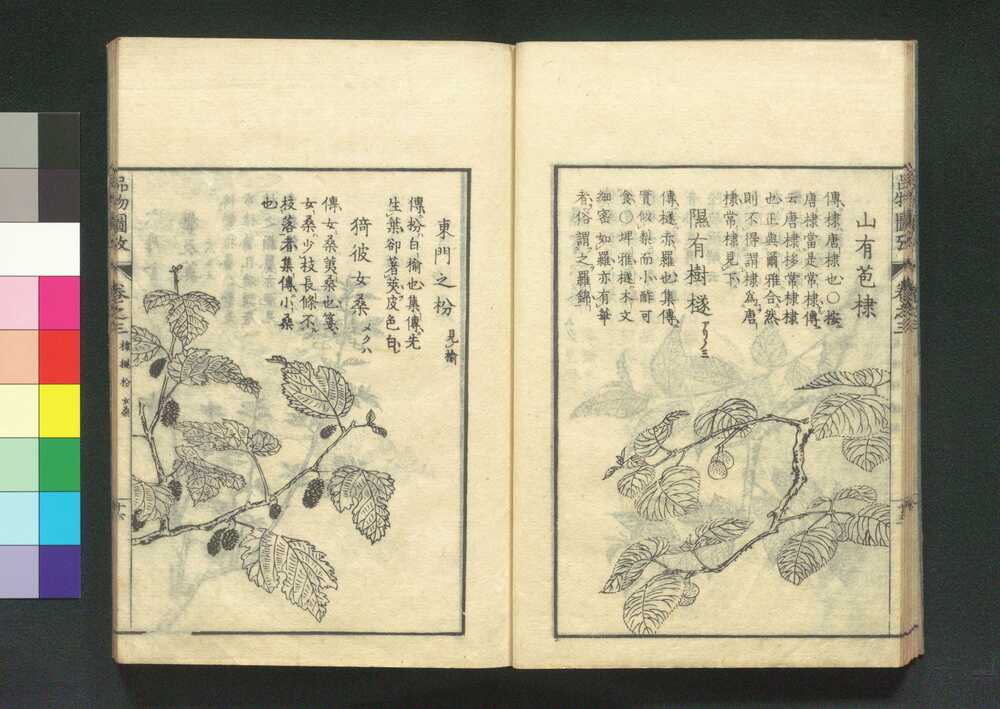 山有苞棣
傳棣唐棣也〇按
唐棣當是常棣傳
云唐棣栘常棣棣
也正與爾雅合然
則不得謂棣為唐
棣常棣見下
隰有樹檖
傳檖赤羅也集傳
實似梨而小酢可
食〇埤雅檖木文
細密如羅亦有華
者俗謂之羅錦
品物圖攷
卷之三
東門之枌 見榆
傳枌白榆也集傳先
生葉卻著莢皮色白
猗彼女桑 メクハ
傳女桑荑桑也箋
女桑少枝長條不
枝落者集傳小桑
也
品物圖攷
卷之三
枌 女桑